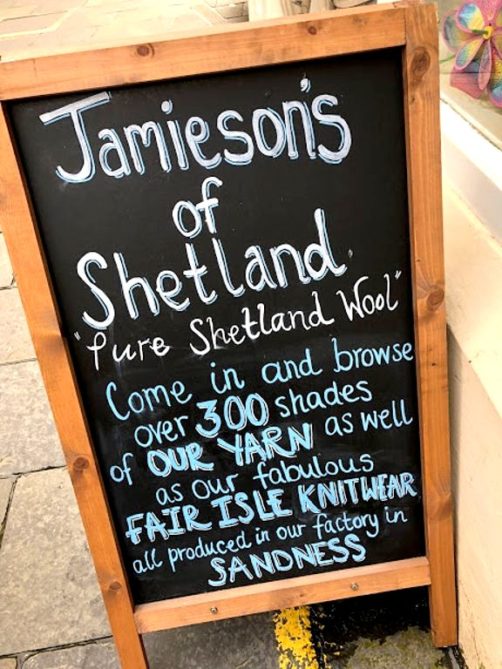 Jamieson's
of
Shetland
"Pure Shetland Wool"
Come in and browse
over 300 shades
of OUR YARN as well
as our fabulous
FAIR ISLE KNITWEAR
all produced in our factory in
SANDNESS